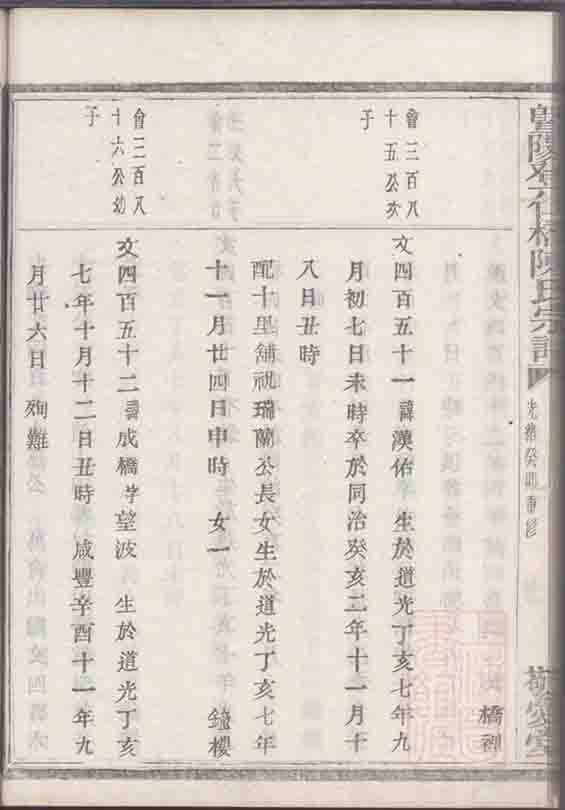 陳氏宗譜
光緒癸卯重修
橋裡
會三百八
十五公次
子
文四百五十一 諱漢佑 生於道光丁亥七年九
月初七日未時卒於同治癸亥二年十一月十
八日丑時
配十里舖祝瑞蘭公長女生於道光丁亥七年
十一月廿四日申時 女一 鐘樓
會三百八
十六公幼
子
文四百五十二 諱成橋字望波 生於道光丁亥
七年十月十二日丑時 咸豐辛酉十一年九
月廿六日 殉難